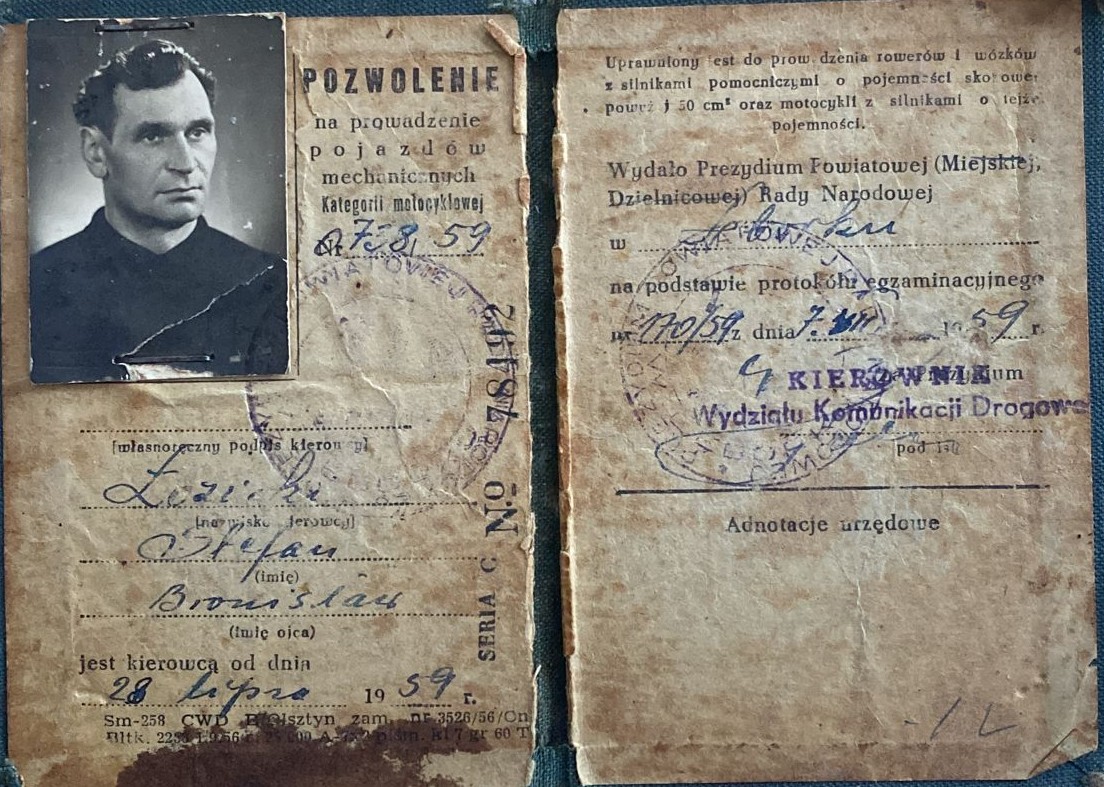 POZWOLENIE
na prowadzenie
pojazdów
mechanicznych
Kategorii motocyklowej
Nr 758, 59
[własnoręczny podpis kierowcy]
[nazwisko kierowcy]
Stefan
(imię)
Bronisław
(imię ojca)
jest kierowcą od dnia
28 lipca 1959 r.
Sm-258 CWD Olsztyn zam. nr 3526/56/On
Bltk.
SERIA C No
Uprawniony jest do prowadzenia rowerów i wózków
z silnikami pomocniczymi o pojemności skokowej
poniżej 50 cm³ oraz motocykli z silnikami o tejże
pojemności.
Wydało Prezydium Powiatowej (Miejskiej,
Dzielnicowej) Rady Narodowej
w
na podstawie protokółu egzaminacyjnego
nr 170/59 z dnia 7. 1959 r.
KIEROWNIK
Wydziału Komunikacji Drogowej
Adnotacje urzędowe